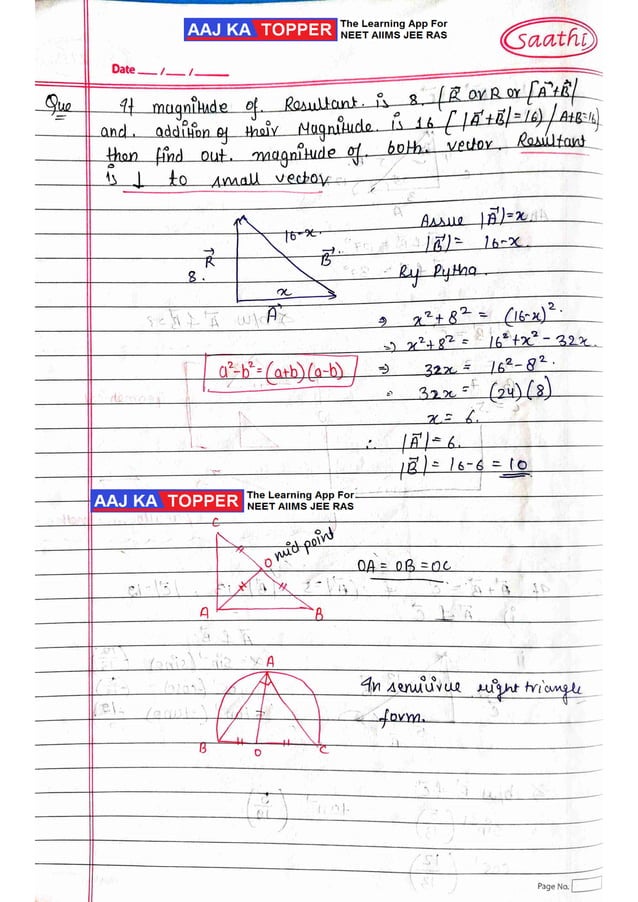 AAJ KA TOPPER The Learning App For NEET AIIMS JEE RAS
Saathi
Date __/__/__
Que If magnitude of Resultant is 8. (R⃗ or R or |A⃗+B⃗|
and addition of their Magnitude is 16 [|A⃗+B⃗|=16) / A+B=16)
then find out magnitude of both vector. Resultant
is ⊥ to small vector
R⃗
8.
16-x
B⃗
x
A⃗
Assue |A⃗|=x
|B⃗|= 16-x
By Pytha.
⇒ x²+8² = (16-x)²
⇒ x²+8² = 16²+x²-32x
a²-b²=(a+b)(a-b)
⇒ 32x = 16²-8²
32x = (24)(8)
x = 6.
∴ |A⃗|=6.
|B⃗|= 16-6 = 10
AAJ KA TOPPER The Learning App For NEET AIIMS JEE RAS
C
O mid point
A
B
OA = OB = OC
A
B
O
C
In semicircle right triangle
form.
Page No.